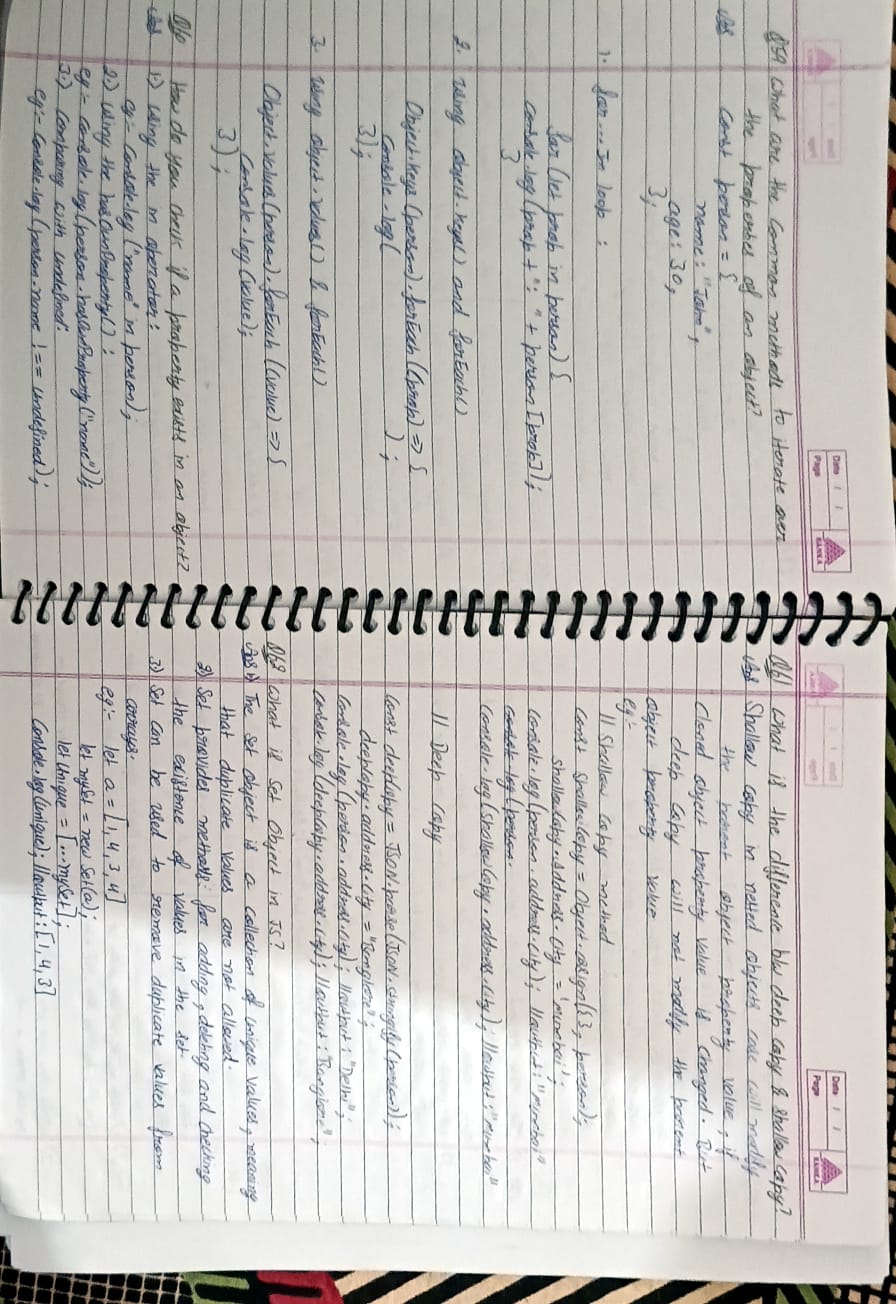 Date
Page
Q59 What are the common methods to iterate over
the properties of an object?
Ans const person = {
name: "John",
age: 30,
};
1. for...in loop :
for (let prop in person) {
console.log(prop + ": " + person[prop]);
}
2. Using object.keys() and forEach()
Object.keys(person).forEach((prop) => {
console.log( );
});
3. Using object.values() & forEach()
Object.values(person).forEach((value) => {
console.log(value);
});
Q60 How do you check if a property exists in an object?
Ans 1) Using the in operator:
eg:- console.log("name" in person);
2) Using the hasOwnProperty():
eg:- console.log(person.hasOwnProperty("name"));
3.) Comparing with undefined:
eg:- console.log(person.name !== undefined);
Date
Page
Q61 What is the difference b/w deep copy & shallow copy?
Ans Shallow copy in nested objects case will modify
the parent object property value, if
cloned object property value is changed. But
deep copy will not modify the parent
object property value
eg:-
// Shallow copy method
const shallowCopy = Object.assign({}, person);
shallowCopy.address.city = 'mumbai';
console.log(person.address.city); //output: "mumbai"
console.log(person.
console.log(shallowCopy.address.city); //output: "mumbai"
// Deep copy
const deepCopy = JSON.parse(JSON.stringify(person));
deepCopy.address.city = "Banglore";
console.log(person.address.city); //output: "Delhi";
console.log(deepCopy.address.city); //output: "Banglore";
Q62 What is Set Object in JS?
Ans 1) The Set object is a collection of unique values, meaning
that duplicate values are not allowed.
2) Set provides methods for adding, deleting and checking
the existence of values in the set
3.) Set can be used to remove duplicate values from
arrays.
eg:- let a = [1,4,3,4]
let myset = new Set(a);
let unique = [...myset];
console.log(unique); //output: [1,4,3]